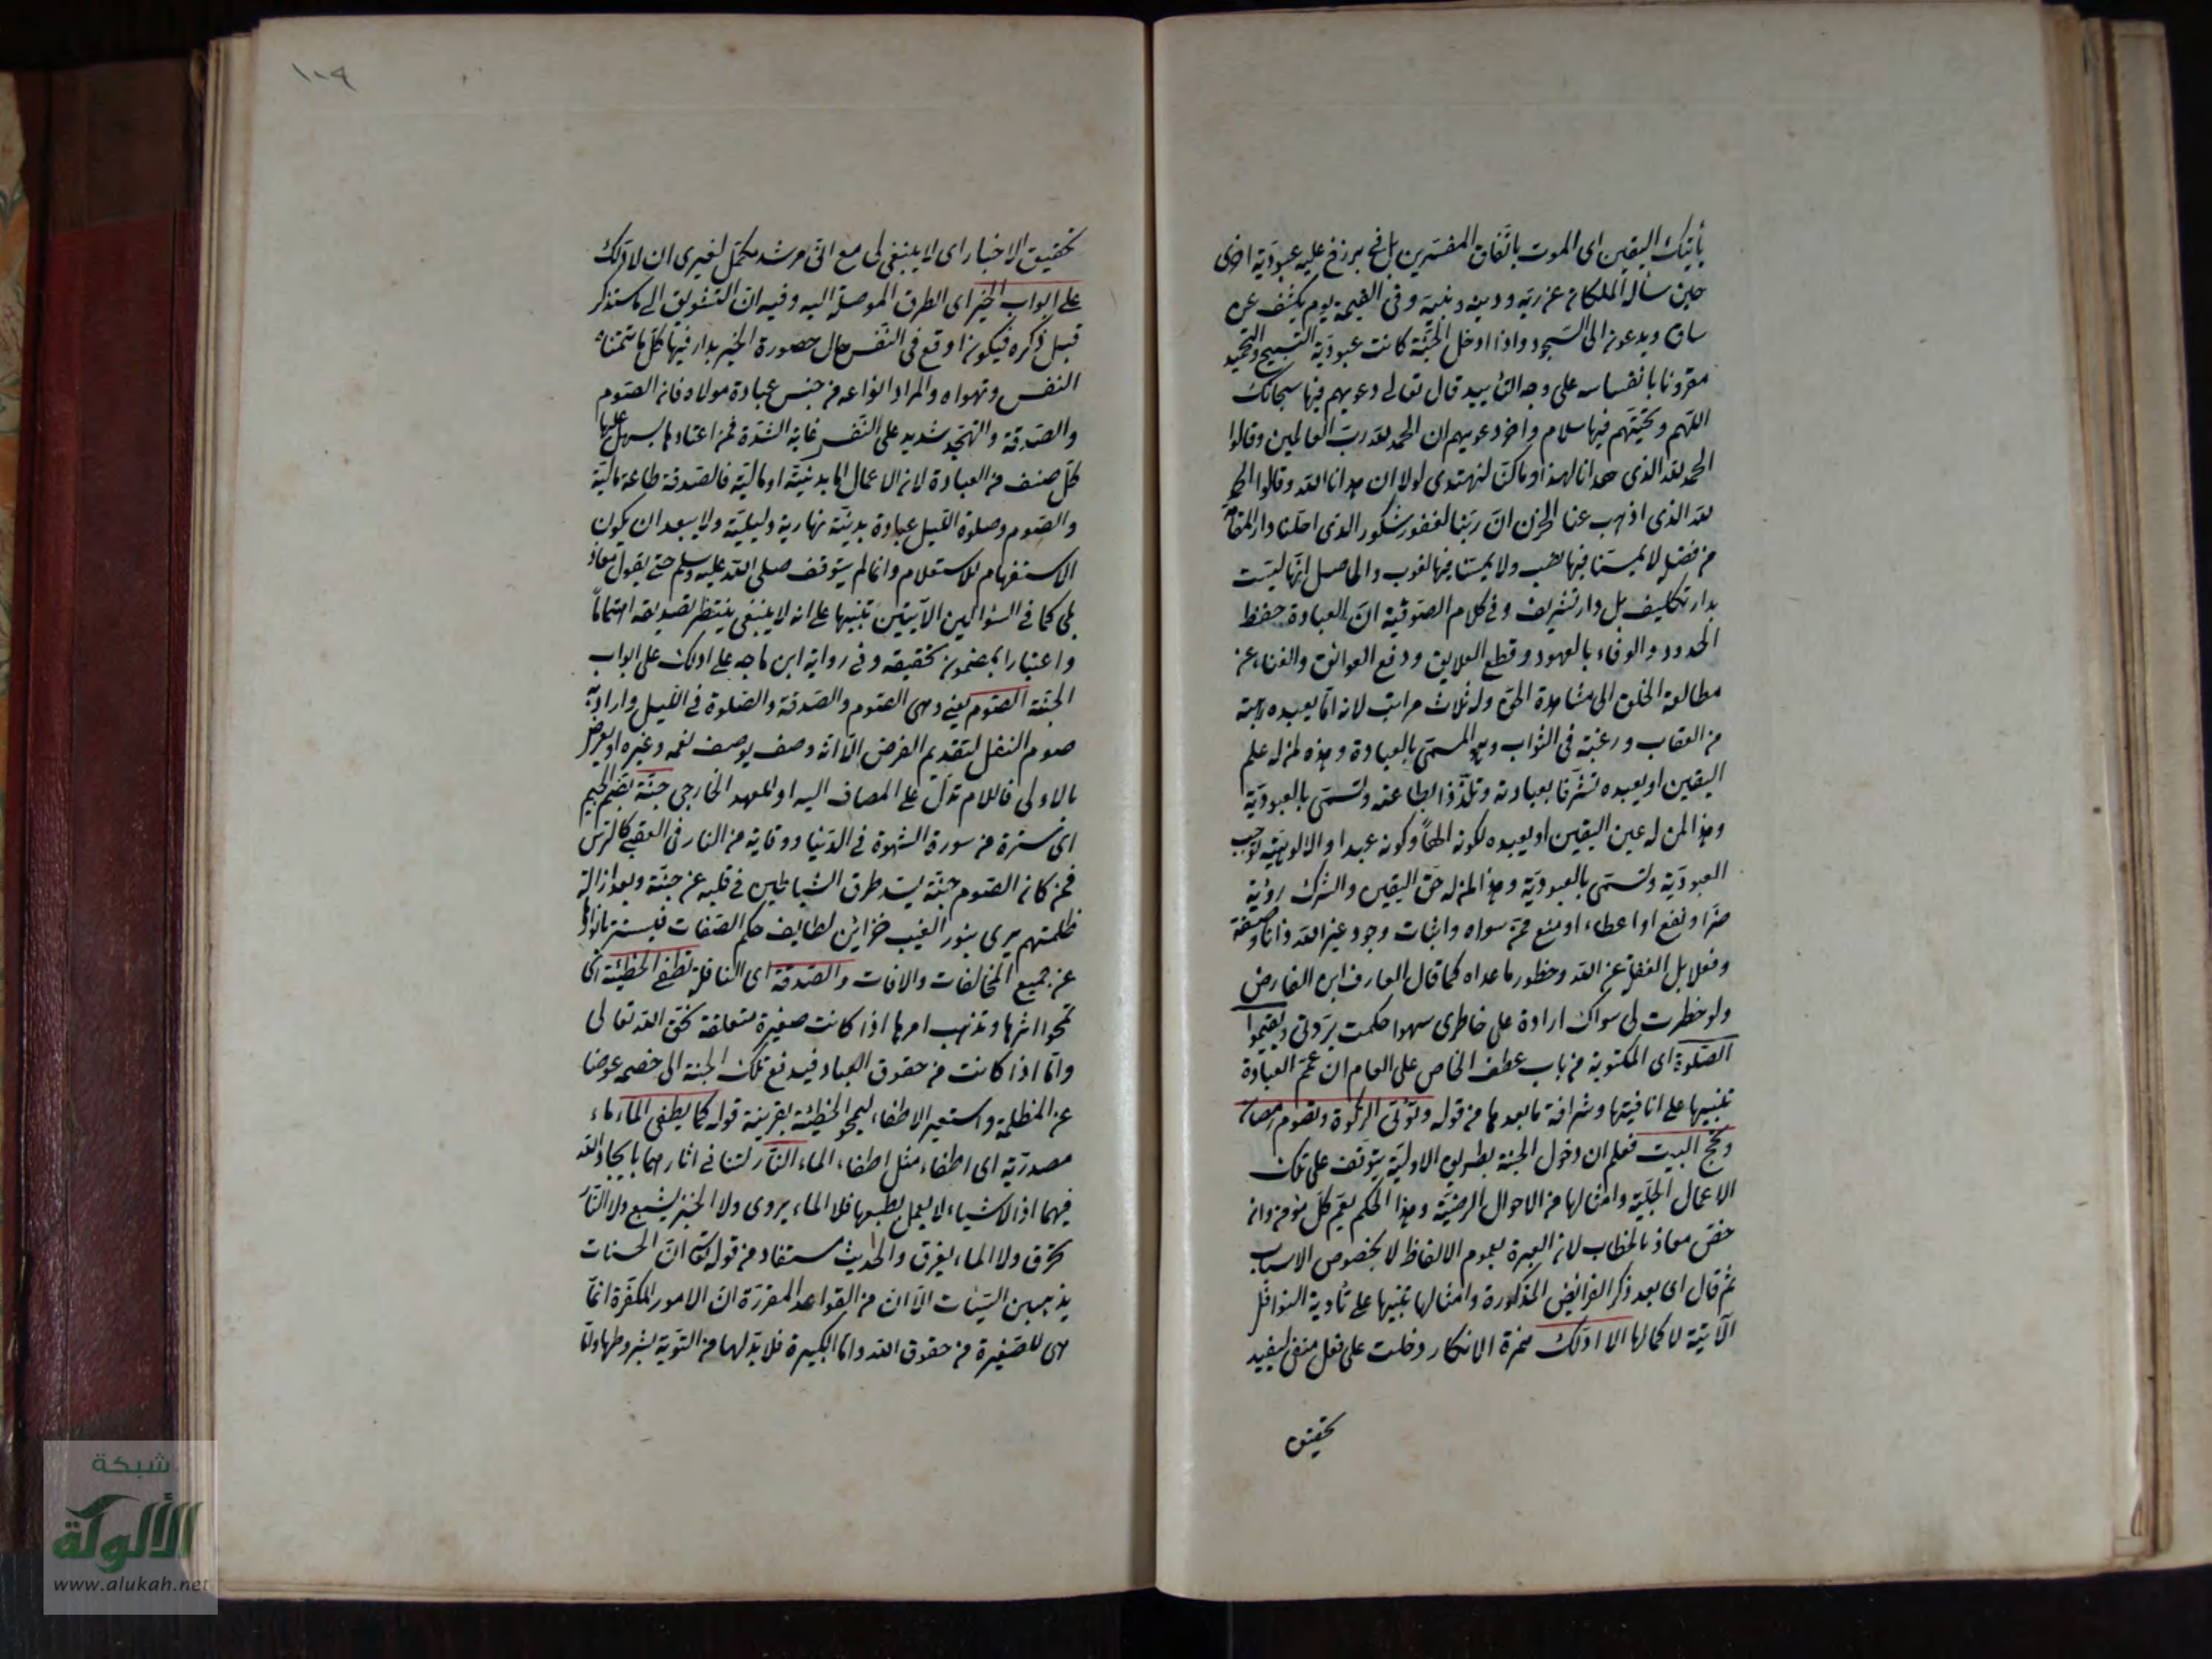 يأتيك اليقين اى الموت باتفاق المفسرين بل فى برزخ عليه عبودية اخرى
حين سأله الملكان عن ربه ودينه ونبيه وفى القيمة يوم يكشف عن
ساق ويدعون الى السجود واذا ادخل الجنة كانت عبودية التسبيح والتحميد
مقرونا بانفاسه على وجه التأييد قال تعالى دعويهم فيها سبحانك
اللهم وتحيتهم فيها سلام واخر دعويهم ان الحمد لله رب العالمين وقالوا
الحمد لله الذى هدانا لهذا وما كنا لنهتدى لولا ان هدانا الله وقالوا الحمد
لله الذى اذهب عنا الحزن ان ربنا لغفور شكور الذى احلنا دار المقامة
من فضله لا يمسنا فيها نصب ولا يمسنا فيها لغوب والحاصل انها ليست
بدار تكليف بل دار تشريف وفى كلام الصوفية ان العبادة حفظ
الحدود والوفاء بالعهود وقطع العلايق ودفع العوائق والفناء عن
مطالعة الخلق الى مشاهدة الحق وله ثلاث مراتب لانه اما يعبده رهبة
من العقاب ورغبة فى الثواب وهو المسمى بالعبادة وهذه لمن له علم
اليقين او يعبده تشرفا بعبادته وتلذذا بطاعته وتسمى بالعبودية
وهذا لمن له عين اليقين او يعبده لكونه الها وكونه عبدا والالوهية توجب
العبودية وتسمى بالعبودية وهذا لمن له حق اليقين والشرك رؤية
ضر او نفع او اعطاء او منع ممن سواه واثبات وجود غير الله ذاتا وصفة
وفعلا بل الغفلة عن الله وخطور ما عداه كما قال العارف ابن الفارض
ولو خطرت لى سواك ارادة على خاطرى سهوا حكمت بردتى وتقيموا
الصلوة اى المكتوبة من باب عطف الخاص على العام ان عم العبادة
تنبيها على انافيتها وشرافة ما بعدها من قوله وتؤتى الزكوة وتصوم رمضان
وتحج البيت فعلم ان دخول الجنة بطريق الاولية يتوقف على تلك
الاعمال الجلية وامثالها من الاحوال الرضية وهذا الحكم يعم كل مؤمن وانه
خص معاذ بالخطاب لان العبرة بعموم الالفاظ لا بخصوص الاسباب
ثم قال اى بعد ذكر الفرائض المذكورة وامثالها تنبيها على تأدية النوافل
الآتية لاكمالها الا ادلك همزة الانكار دخلت على فعل منفى ليفيد
تحقيق
١٠٩
تحقيق الاخبار اى لا ينبغى لى مع انى مرشد مكمل لغيرى ان لا ادلك
على ابواب الخير اى الطرق الموصلة اليه وفيه ان التشويق الى ما ستذكر
قبل ذكره فيكون اوقع فى النفس حال حصوره الخير بدار فيها كل ما تتمناه
النفس وتهواه والمراد انواعه من جنس عبادة مولاه فان الصوم
والصدقة والتهجد شديد على النفس غاية الشدة فمن اعتادها يسهل عليها
كل صنف من العبادة لان الاعمال اما بدنية او مالية فالصدقة طاعة مالية
والصوم وصلوة الليل عبادة بدنية نهارية وليلية ولا يبعد ان يكون
الاستفهام للاستعلام وانما لم يتوقف صلى الله عليه وسلم حتى يقول معاذ
بلى كما فى السؤالين الآتيين تنبيها على انه لا ينبغى ينتظر تصديقه اهتماما
واعتبارا بمضمون تحقيقه وفى رواية ابن ماجه على ادلك على ابواب
الجنة الصوم يعنى وهى الصوم والصدقة والصلوة فى الليل واراد به
صوم النفل لتقديم الفرض الا انه وصف يوصف نعمه وغيره او يعرض
بالاولى فاللام تدل على المضاف اليه او للعهد الخارجى جنة بضم الجيم
اى سترة من سورة الشهوة فى الدنيا ووقاية من النار فى العقبى كالترس
فمن كان الصوم جنة يسد طرق الشياطين فى قلبه عن جنة وبعد ازالة
ظلمتهم يرى بنور الغيب خزائن لطايف حكم الصفات فيستتر بانوارها
عن جميع المخالفات والافات والصدقة اى النافلة تطفئ الخطيئة اى
تمحو اثرها وتذهب امرها اذا كانت صغيرة متعلقة بحق الله تعالى
واما اذا كانت من حقوق العباد فيدفع تلك الجنة الى خصمه عوضا
عن المظلمة واستعير الاطفاء ليمحو الخطيئة بقرينة قوله كما يطفى الماء ماء
مصدرية اى اطفاء مثل اطفاء الماء النار لتنافى اثارهما بايجاد الله
فيهما اذ الاشياء لا يعمل بطبعها فلا الماء يروى ولا الخبز يشبع ولا النار
تحرق ولا الماء يغرق والحديث مستفاد من قوله تعالى ان الحسنات
يذهبن السيئات الا ان من القواعد المقررة ان الامور المكفرة انما
هى للصغيرة من حقوق الله واما الكبيرة فلا بد لها من التوبة بشروطها ولما
شبكة
الألوكة
www.alukah.net